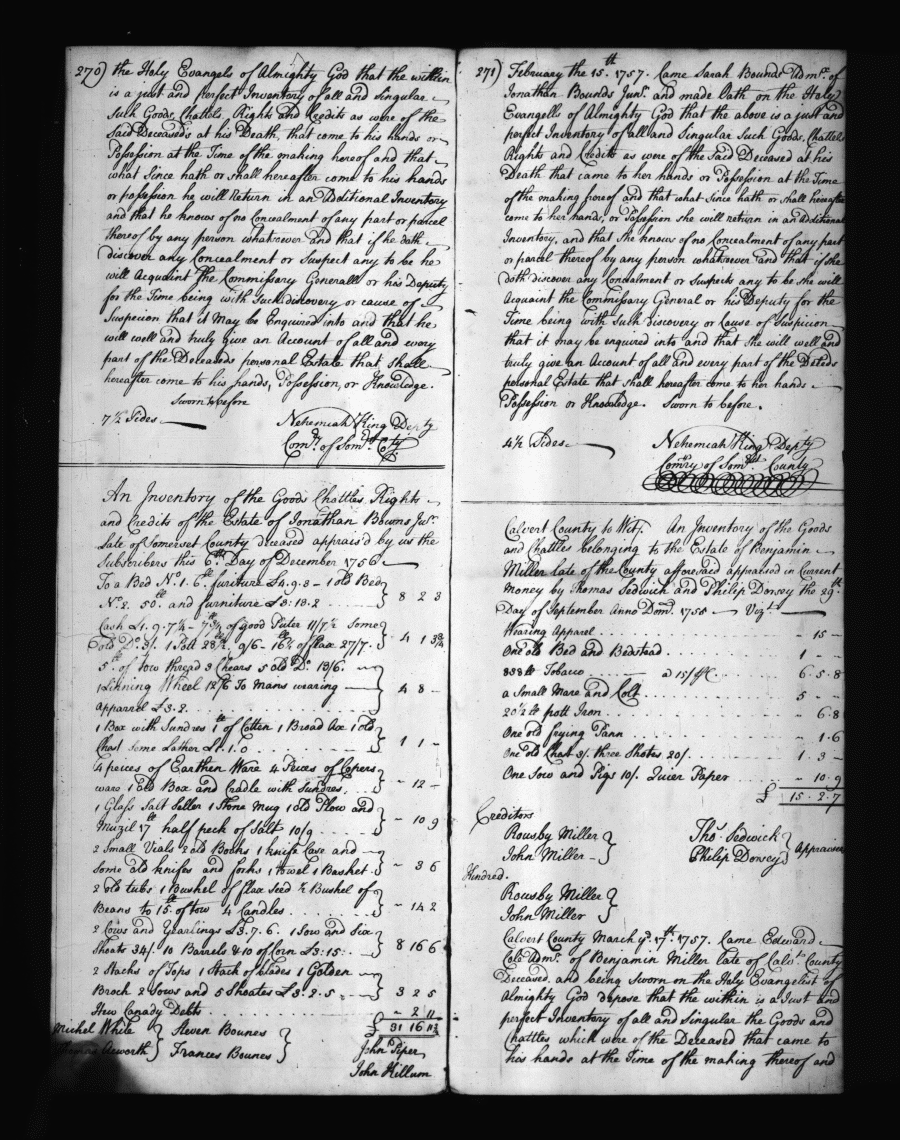 270) the Holy Evangels of Almighty God that the within
is a just and perfect Inventory of all and Singular
Such Goods, Chattels, Rights and Credits as were of the
Said Deceased's at his Death, that come to his hands or
Possession at the Time of the making hereof and that
what Since hath or shall hereafter come to his hands
or possession he will Return in an Additional Inventory
and that he knows of no Concealment of any part or parcel
thereof by any person whatsoever and that if he doth
discover any Concealment or Suspect any to be he
will Acquaint The Commissary Generall or his Deputy
for the Time being with Such discovery or cause of
Suspecion that it May be Enquired into and that he
will well and truly give an Account of all and every
part of the Deceaseds personal Estate that, Shall
hereafter come to his hands, Possession, or Knowledge.
Sworn to before
7 1/2 Sides
Nehemiah King Depty
Comry of Somt Coty
An Inventory of the Goods Chattles Rights
and Credits of the Estate of Jonathan Bowns Junr
Late of Somerset County deceased apprais'd by us the
Subscribers this 6th Day of December 1756
To a Bed No. 1. 6 furniture £4.9.3 - 1 old Bed
No. 2. 50 lb and furniture £3:13.2 8 2 3
Cash £1.9.7 1/4 - 7 3/4 lb of good Puter 11/7 1/2 Some
old Do 3/. 1 Pott 28 1/2 9/6 - 16 1/2 lb of flax 27/7. 4 1 3 3/4
5 lb of tow thread 3 Chears 5 old Do 13/6.
1 Spinning Wheel 12/6 To Mans wearing
apparrel £3.2 4 8 -
1 Box with Sundres 1 lb of Cotten 1 Broad Axe 1 old
Chest Some Lather £1.1.0 1 1 -
4 peices of Earthen Ware 4 Peices of Copers
ware 1 old Box and Cradle with Sundres - 12 -
1 Glass Salt Seller 1 Stone Mug 1 old Plow and
Muzil 17 lb half peck of Salt 10/9 - 10 9
2 Small Vials 2 old Books 1 knife Case and
Some old knifes and forks 1 towel 1 Basket - 3 6
2 old tubs 1 Bushel of flax Seed 1/2 Bushel of
Beans to 15 lb of tow 4 Candles - 14 2
2 Cows and Yearlings £3.7.6. 1 Sow and Six
Shoats 34/. 10 Barrels & 10 of Corn £3:15: 8 16 6
2 Stacks of Tops 1 Stack of blades 1 Golden
Brock 2 Sows and 5 Shoates £3.2.5 3 2 5
Debts - 2 11
31 16 11 3/4
Michel White Steven Bounes
Thomas Acworth Frances Bounes
John Piper
John Killum
271) February the 15th 1757. Came Sarah Bounds Admx. of
Jonathan Bounds Junr. and made Oath on the Holy
Evangells of Almighty God that the above is a just and
perfect Inventory of all and Singular Such Goods, Chattels
Rights and Credits as were of the Said Deceased at his
Death that came to her hands or Possession at the Time
of the making hereof and that what Since hath or shall hereafter
come to her hands, or Possession she will return in an Additional
Inventory, and that She knows of no Concealment of any part
or parcel thereof by any person whatsoever and that if she
doth discover any Concealment or Suspects any to be she will
Acquaint the Commissary General or his Deputy for the
Time being with Such discovery or Cause of Suspicion
that it may be enquired into and that She will well and
truly give an Account of all and every part of the Deceds
personal Estate that shall hereafter come to her hands
Possession or Knowledge. Sworn to before.
4 1/2 Sides
Nehemiah King Depty
Comry of Somst County
Calvert County to Wit. An Inventory of the Goods
and Chattles belonging to the Estate of Benjamin
Miller late of the County aforesaid appraised in Current
money by Thomas Sedwick and Philip Dorsey the 29th
Day of September Anno Dom. 1755 - Vizt.
Wearing Apparel - 15 -
One old Bed and Bedstead 1 - -
838 lb Tobacco a 15/ 6.5.8
a Small Mare and Colt 5 - -
20 1/2 lb pott Iron - 6.8
One old frying Pann - 1.6
One old Chest 3/. three Shotes 20/. 1.3 -
One Sow and Pigs 10/. Quier Paper - 10.9
£ 15.2.7
Creditors
Rousby Miller
John Miller
Thos. Sedwick
Philip Dorsey Appraisers
Kindred.
Rousby Miller
John Miller
Calvert County March ye 17th 1757. Came Edward
Cole Admr. of Benjamin Miller late of Calvt County
Deceased and being Sworn on the Holy Evangelist of
Almighty God depose that the within is a Just and
perfect Inventory of all and Singular the Goods and
Chattles which were of the Deceased that came to
his hands at the Time of the making thereof and